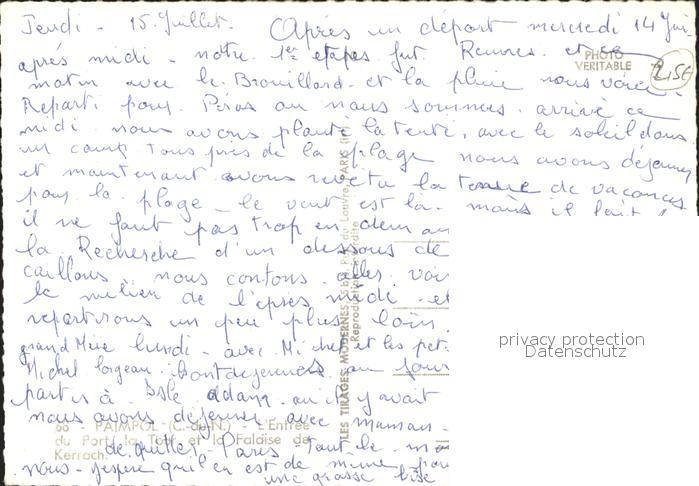 Jeudi - 15 Juillet. Après un départ mercredi 14 Jui
après midi - notre 1er etapes fut. Rennes. et ce
matin avec le. Brouillard - et la pluie nous voici
Reparti pour. Péros au nous sommes. arrivé ce
midi. nous avons planté la tente, avec le soleil dans
un camp tous près de la plage nous avons déjeuner
et maintenant avons revêtu la tenue de vacances
pour la plage - le vent est la - mais il fait
il ne faut pas trop en demau
la Recherche d'un dessous de
caillous nous contons. aller voir
le milieu de l'apres midi - et
repartirons un peu plus loin.
grand Mère lundi - avec Michel et les pet
Michel
partis à. Isle adam. ou il y avait
nous avons déjeuner avec maman -
de quitter. Paris - Tout le
nous - j'espere qu'il en est de meme pour
une grosse bise
PHOTO
VÉRITABLE
2,5€
LES TIRAGES MODERNES, 5 bis, Rue du Louvre, PARIS
Reproduction interdite
66 - PAIMPOL (C.-du-N.) - L'Entrée
du Port, la Tour et la Falaise de
Kerroch.
privacy protection
Datenschutz